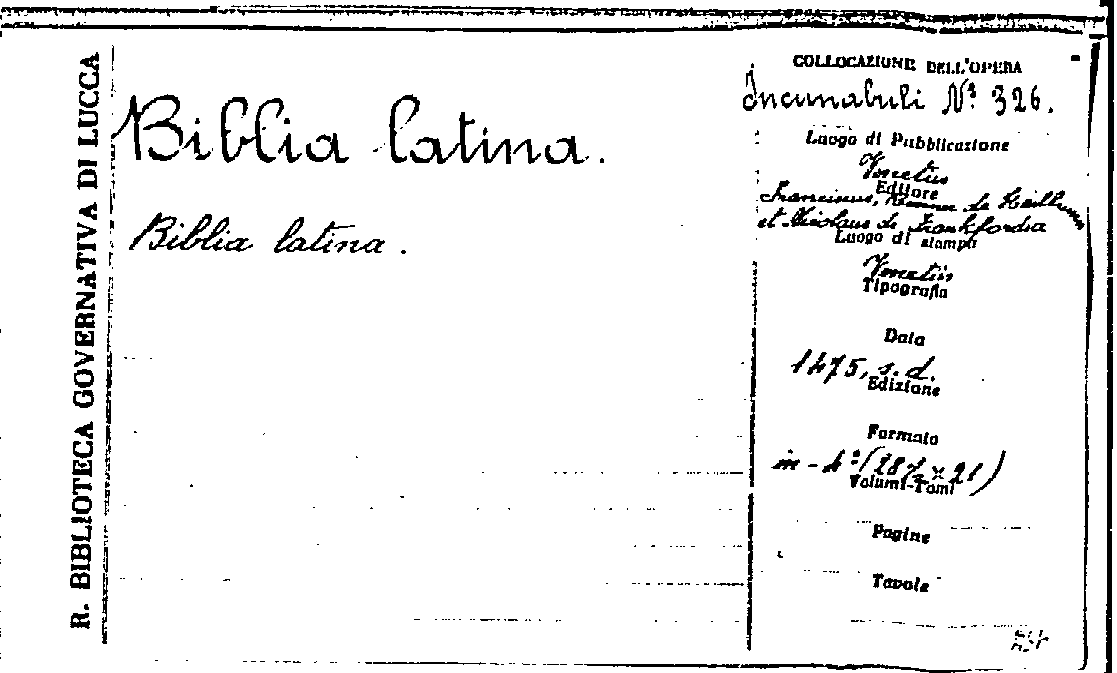 R. BIBLIOTECA GOVERNATIVA DI LUCCA
Biblia latina.
Biblia latina.
COLLOCAZIONE DELL'OPERA
Incunabuli Nº 326.
Luogo di Pubblicazione
Venetiis
Editore
Franciscus, de
et Nicolaus de Frankfordia
Luogo di stampa
Venetiis
Tipografia
Data
1475, s.d.
Edizione
Formato
in-4º
Volumi-Tomi
Pagine
Tavole